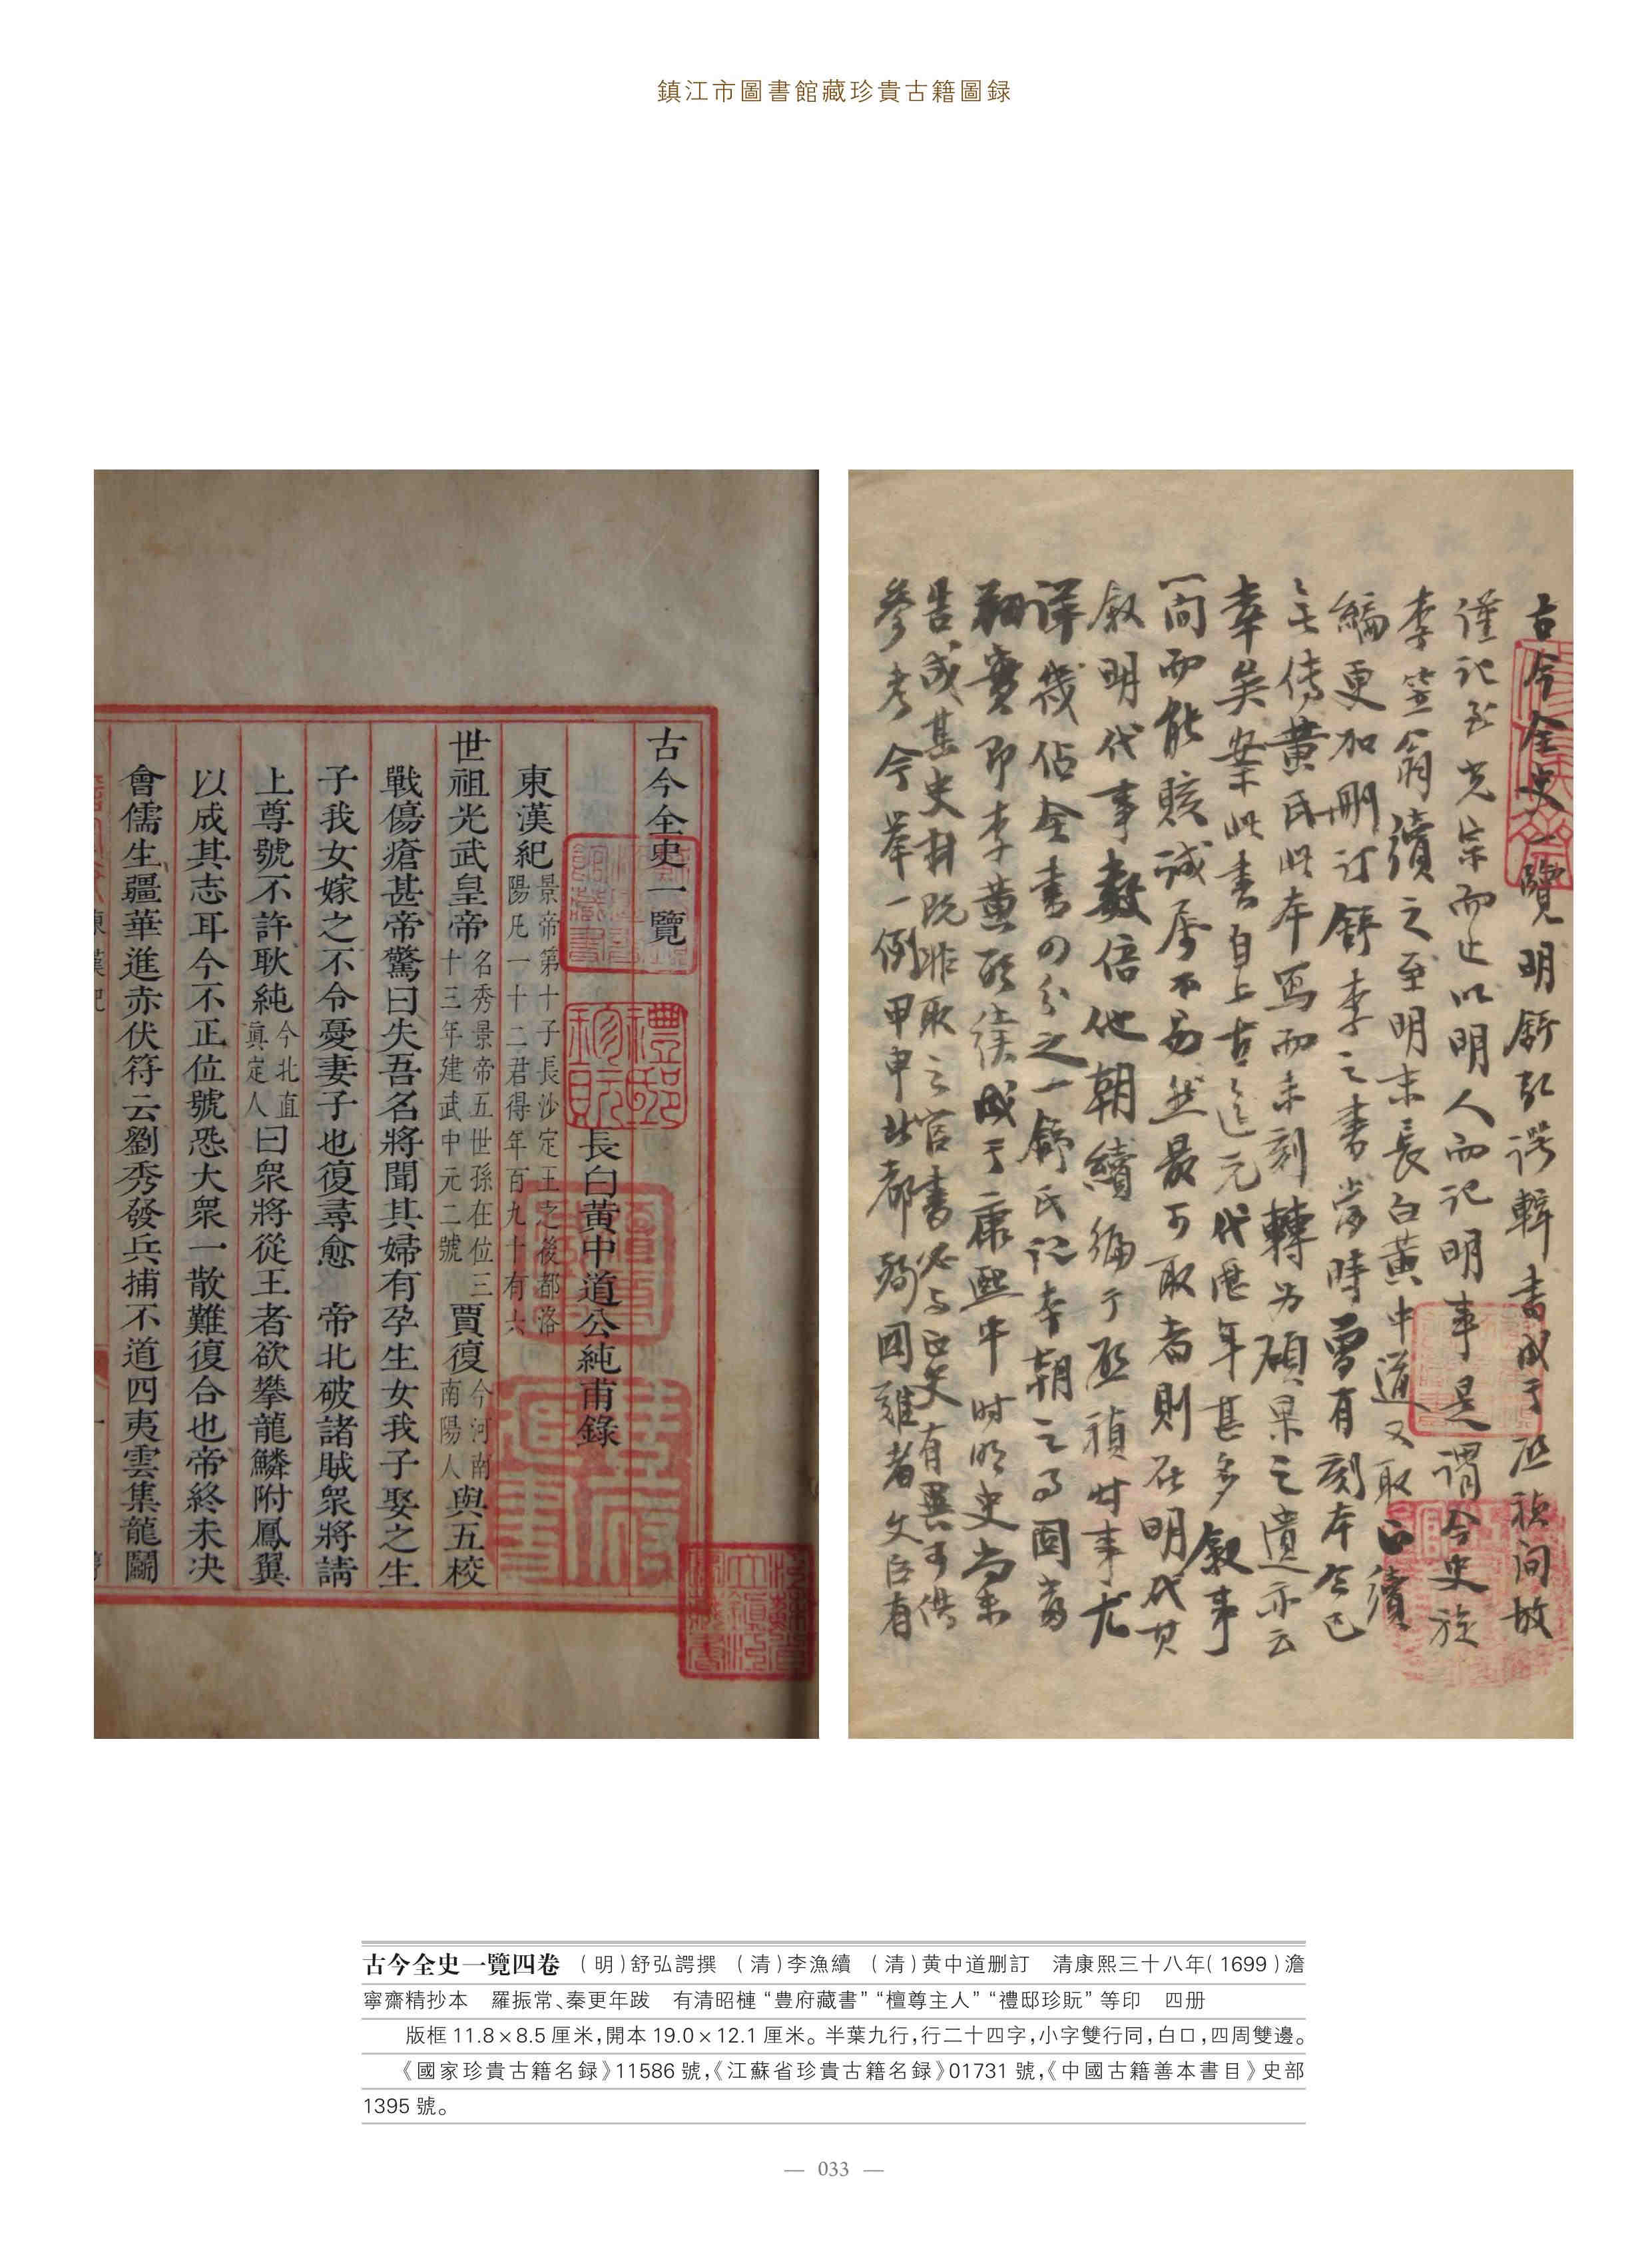 鎮江市圖書館藏珍貴古籍圖録
古今全史一覽明舒弘諤輯書成于啟禎间故
僅記至光宗而止以明人而記明事是謂今史旋
李笠翁續之至明末長白黃中道又取正續
編更加刪訂舒李之書當時曾有刻本今已
无傳黃氏此本寫而未刻轉为碩果之遺亦云
幸矣案此書自上古迄元代歷年甚多敘事
簡而能賅誠屬不易然最可取者則在明代其
敘明代事數倍他朝續編于啟禎時事尤
詳幾佔全書四分之一舒氏記本朝之事固當
翔實即李黃所續成于康熙中时明史尚未
告成其史材既非取之官書必与正史有異可供
參考今舉一例甲申北都殉國雖者文臣有
古今全史一覽
長白黃中道公純甫錄
東漢紀景帝第十子長沙定王之後都洛陽凡一十二君得年百九十有六
世祖光武皇帝名秀景帝五世孫在位三十三年建武中元二號 賈復今河南南陽人與五校
戰傷瘡甚帝驚曰失吾名將聞其婦有孕生女我子娶之生
子我女嫁之不令憂妻子也復尋愈 帝北破諸賊眾將請
上尊號不許耿純今北直真定人曰眾將從王者欲攀龍鱗附鳳翼
以成其志耳今不正位號恐大眾一散難復合也帝終未決
會儒生疆華進赤伏符云劉秀發兵捕不道四夷雲集龍鬭
東漢紀
一
古今全史一覽四卷 （明）舒弘諤撰 （清）李漁續 （清）黄中道删訂 清康熙三十八年（1699）澹
寧齋精抄本 羅振常、秦更年跋 有清昭槤“豊府藏書”“檀尊主人”“禮邸珍貦”等印 四册
版框 11.8×8.5 厘米，開本 19.0×12.1 厘米。半葉九行，行二十四字，小字雙行同，白口，四周雙邊。
《國家珍貴古籍名録》11586 號，《江蘇省珍貴古籍名録》01731 號，《中國古籍善本書目》史部
1395 號。
— 033 —